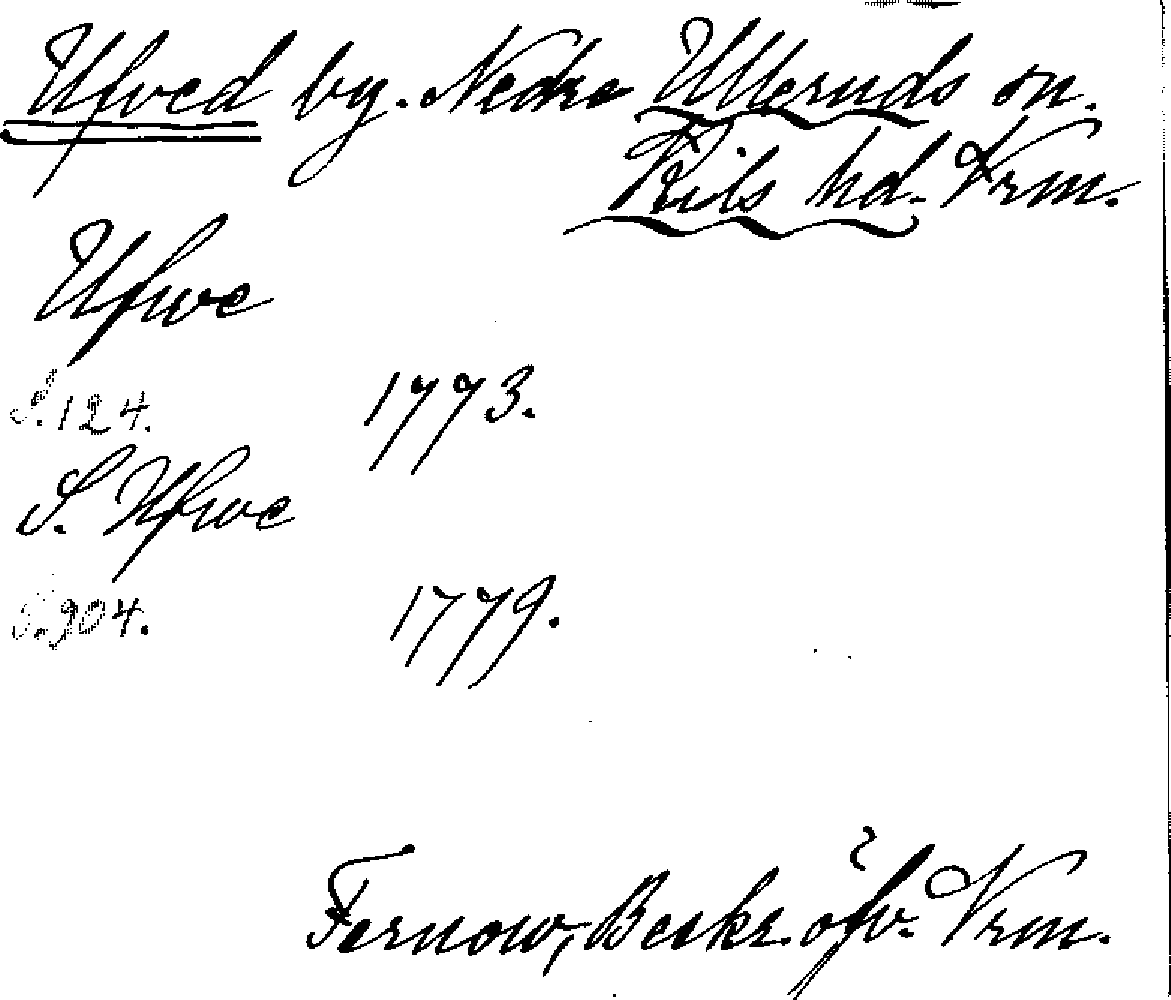 Ufved by. Nedre Ulleruds sn.
Kils hd. Vrm.
Ufwe
S. 124. 1773.
S. Ufwe
S. 904. 1779.
Fernow, Beskr. öfv. Vrm.